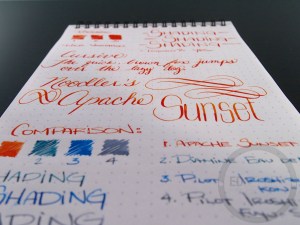 SHADING
SHADING
SHADING
Cursive
The quick brown fox jumps
over the lazy dog.
Noodler's
Apache
Sunset
COMPARISON:
2 3 4
1. APACHE SUNSET
2. DIAMINE EAU DE
3. PILOT IROSHIZUKU
KON-
4. PILOT IROSHIZUKU
SHADING
SHADING
SHADING